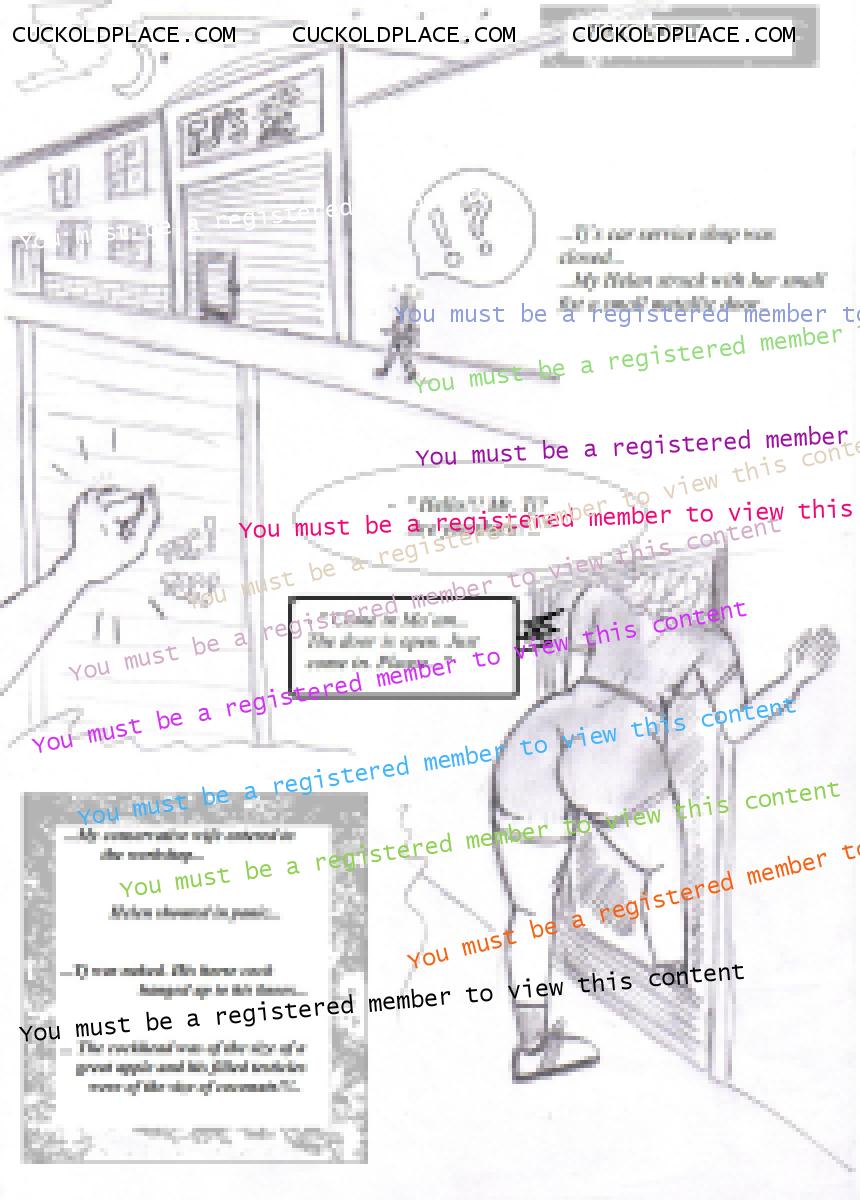 CUCKOLDPLACE.COM CUCKOLDPLACE.COM CUCKOLDPLACE.COM
TJ'S
!?
You must be a registered
...Tj's car service shop was
closed...
...My Helen struck with her small
for a small metallic door...
You must be a registered member to
You must be a registered member
You must be a registered member
You must be a registered member to view this conte
You must be a registered member to view this
"Hello!! Mr. Tj?
You must be a registered member to view this content
in Ma'am...
The door is open. Just
come in.
You must be a registered member to view this content
You must be a registered member to view this content
You must be a registered member to view this content
...My conservative wife entered to
the workshop...
Helen shouted in panic...
You must be a registered member to
...Tj was naked. His horse cock
hanged up to his knees...
You must be a registered member to view this content
... The cockhead was of the size of a
great apple and his filled testicles
were of the size of coconuts!!..